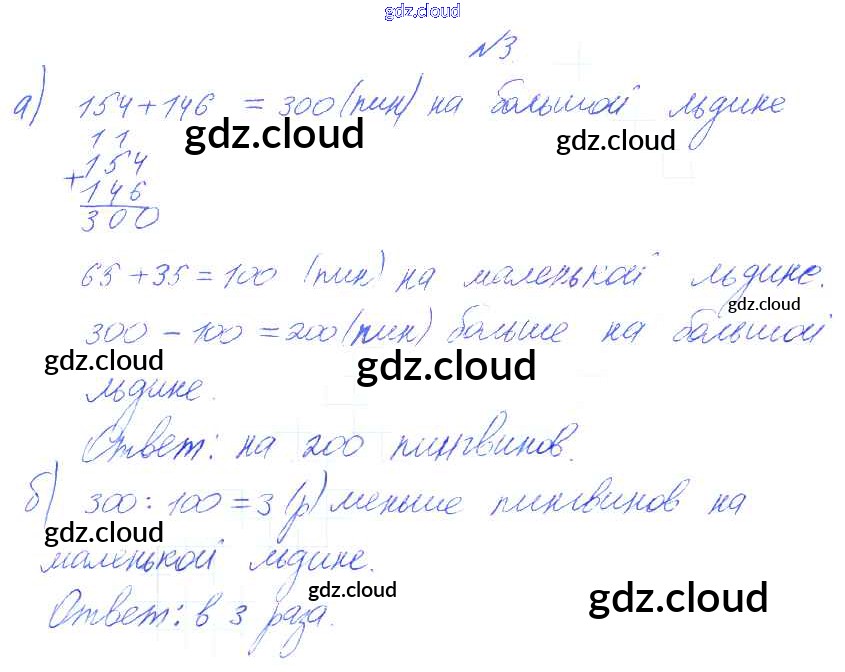 gdz.cloud
№3.
а) 154+146 = 300 (пин) на большой льдине
gdz.cloud gdz.cloud
11
+154
146
300
65+35=100 (пин) на маленькой льдине.
gdz.cloud
300-100=200 (пин) больше на большой
gdz.cloud gdz.cloud
льдине.
Ответ: на 200 пингвинов.
б) 300:100=3 (р) меньше пингвинов на
gdz.cloud
маленькой льдине.
gdz.cloud gdz.cloud
Ответ: в 3 раза.